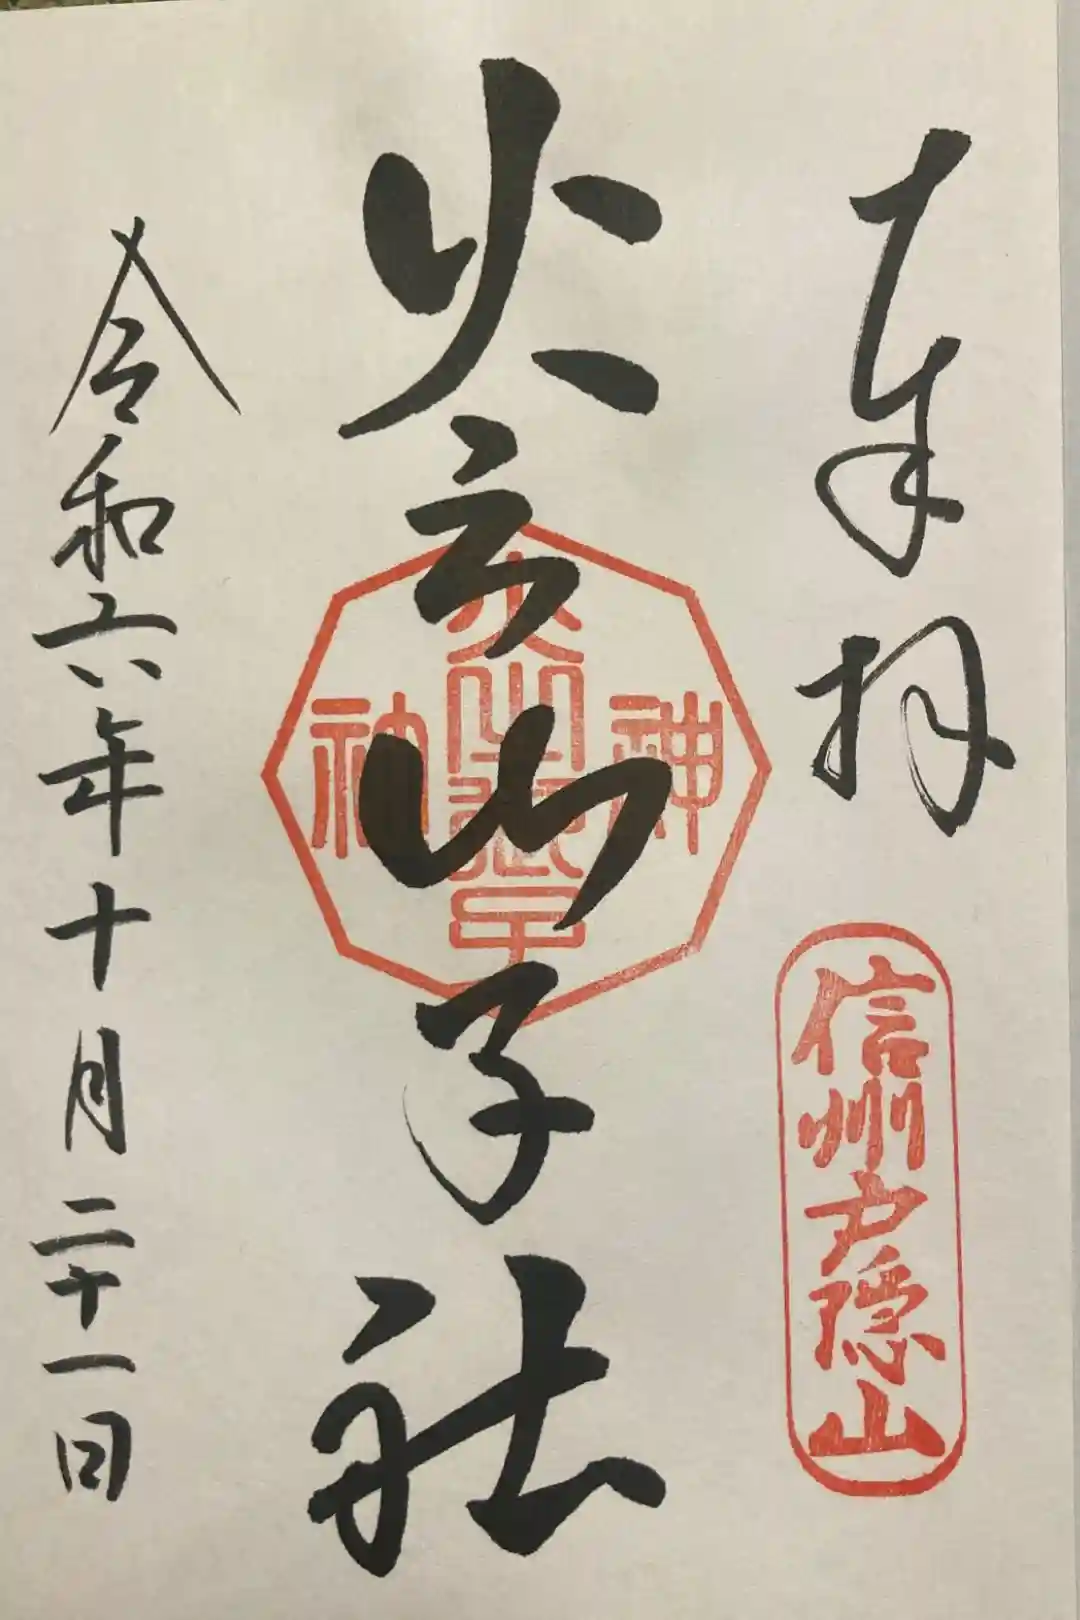 奉拝
信州戸隠山
火之御子社
火之御子神社
令和六年十月二十一日